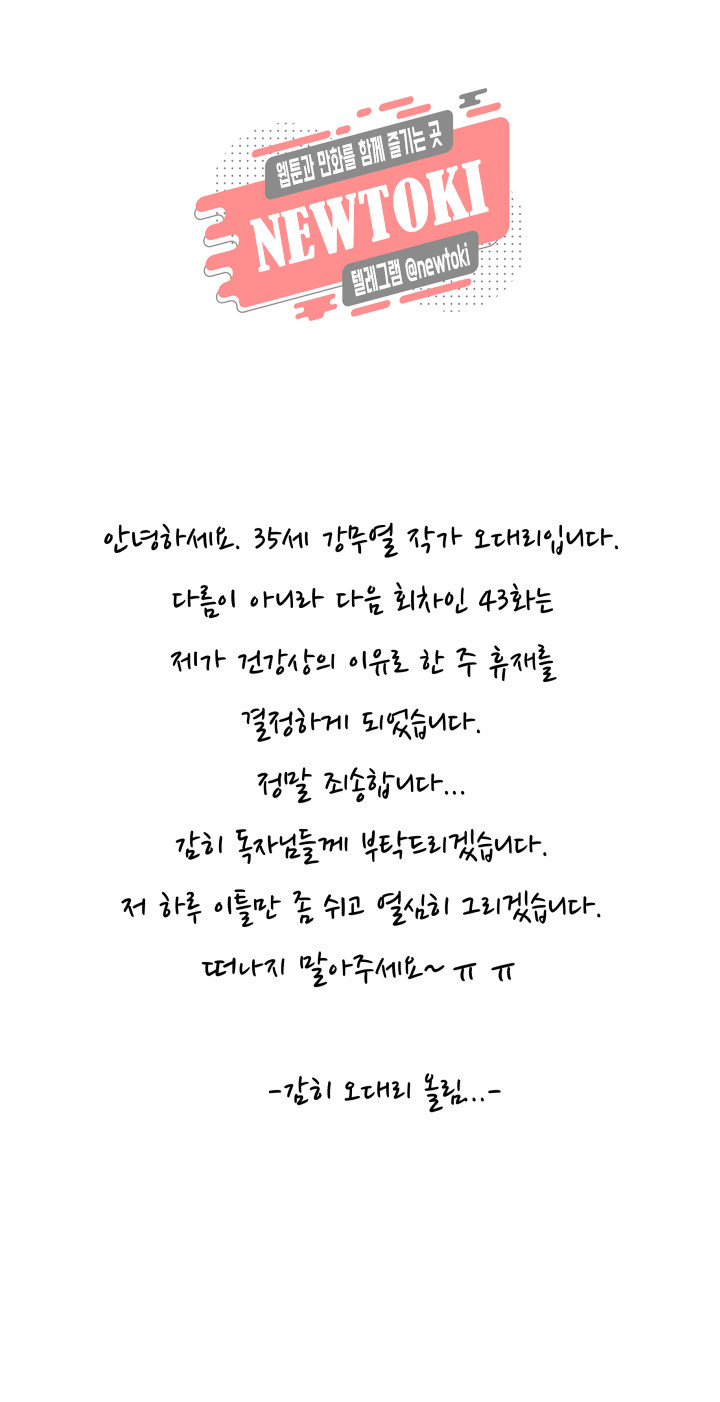 웹툰과 만화를 함께 즐기는 곳
NEWTOKI
텔레그램 @newtoki
안녕하세요. 35세 강무열 작가 오대리입니다.
다름이 아니라 다음 회차인 43화는
제가 건강상의 이유로 한 주 휴재를
결정하게 되었습니다.
정말 죄송합니다...
감히 독자님들께 부탁드리겠습니다.
저 하루 이틀만 좀 쉬고 열심히 그리겠습니다.
떠나지 말아주세요~ ㅠ ㅠ
-감히 오대리 올림...-